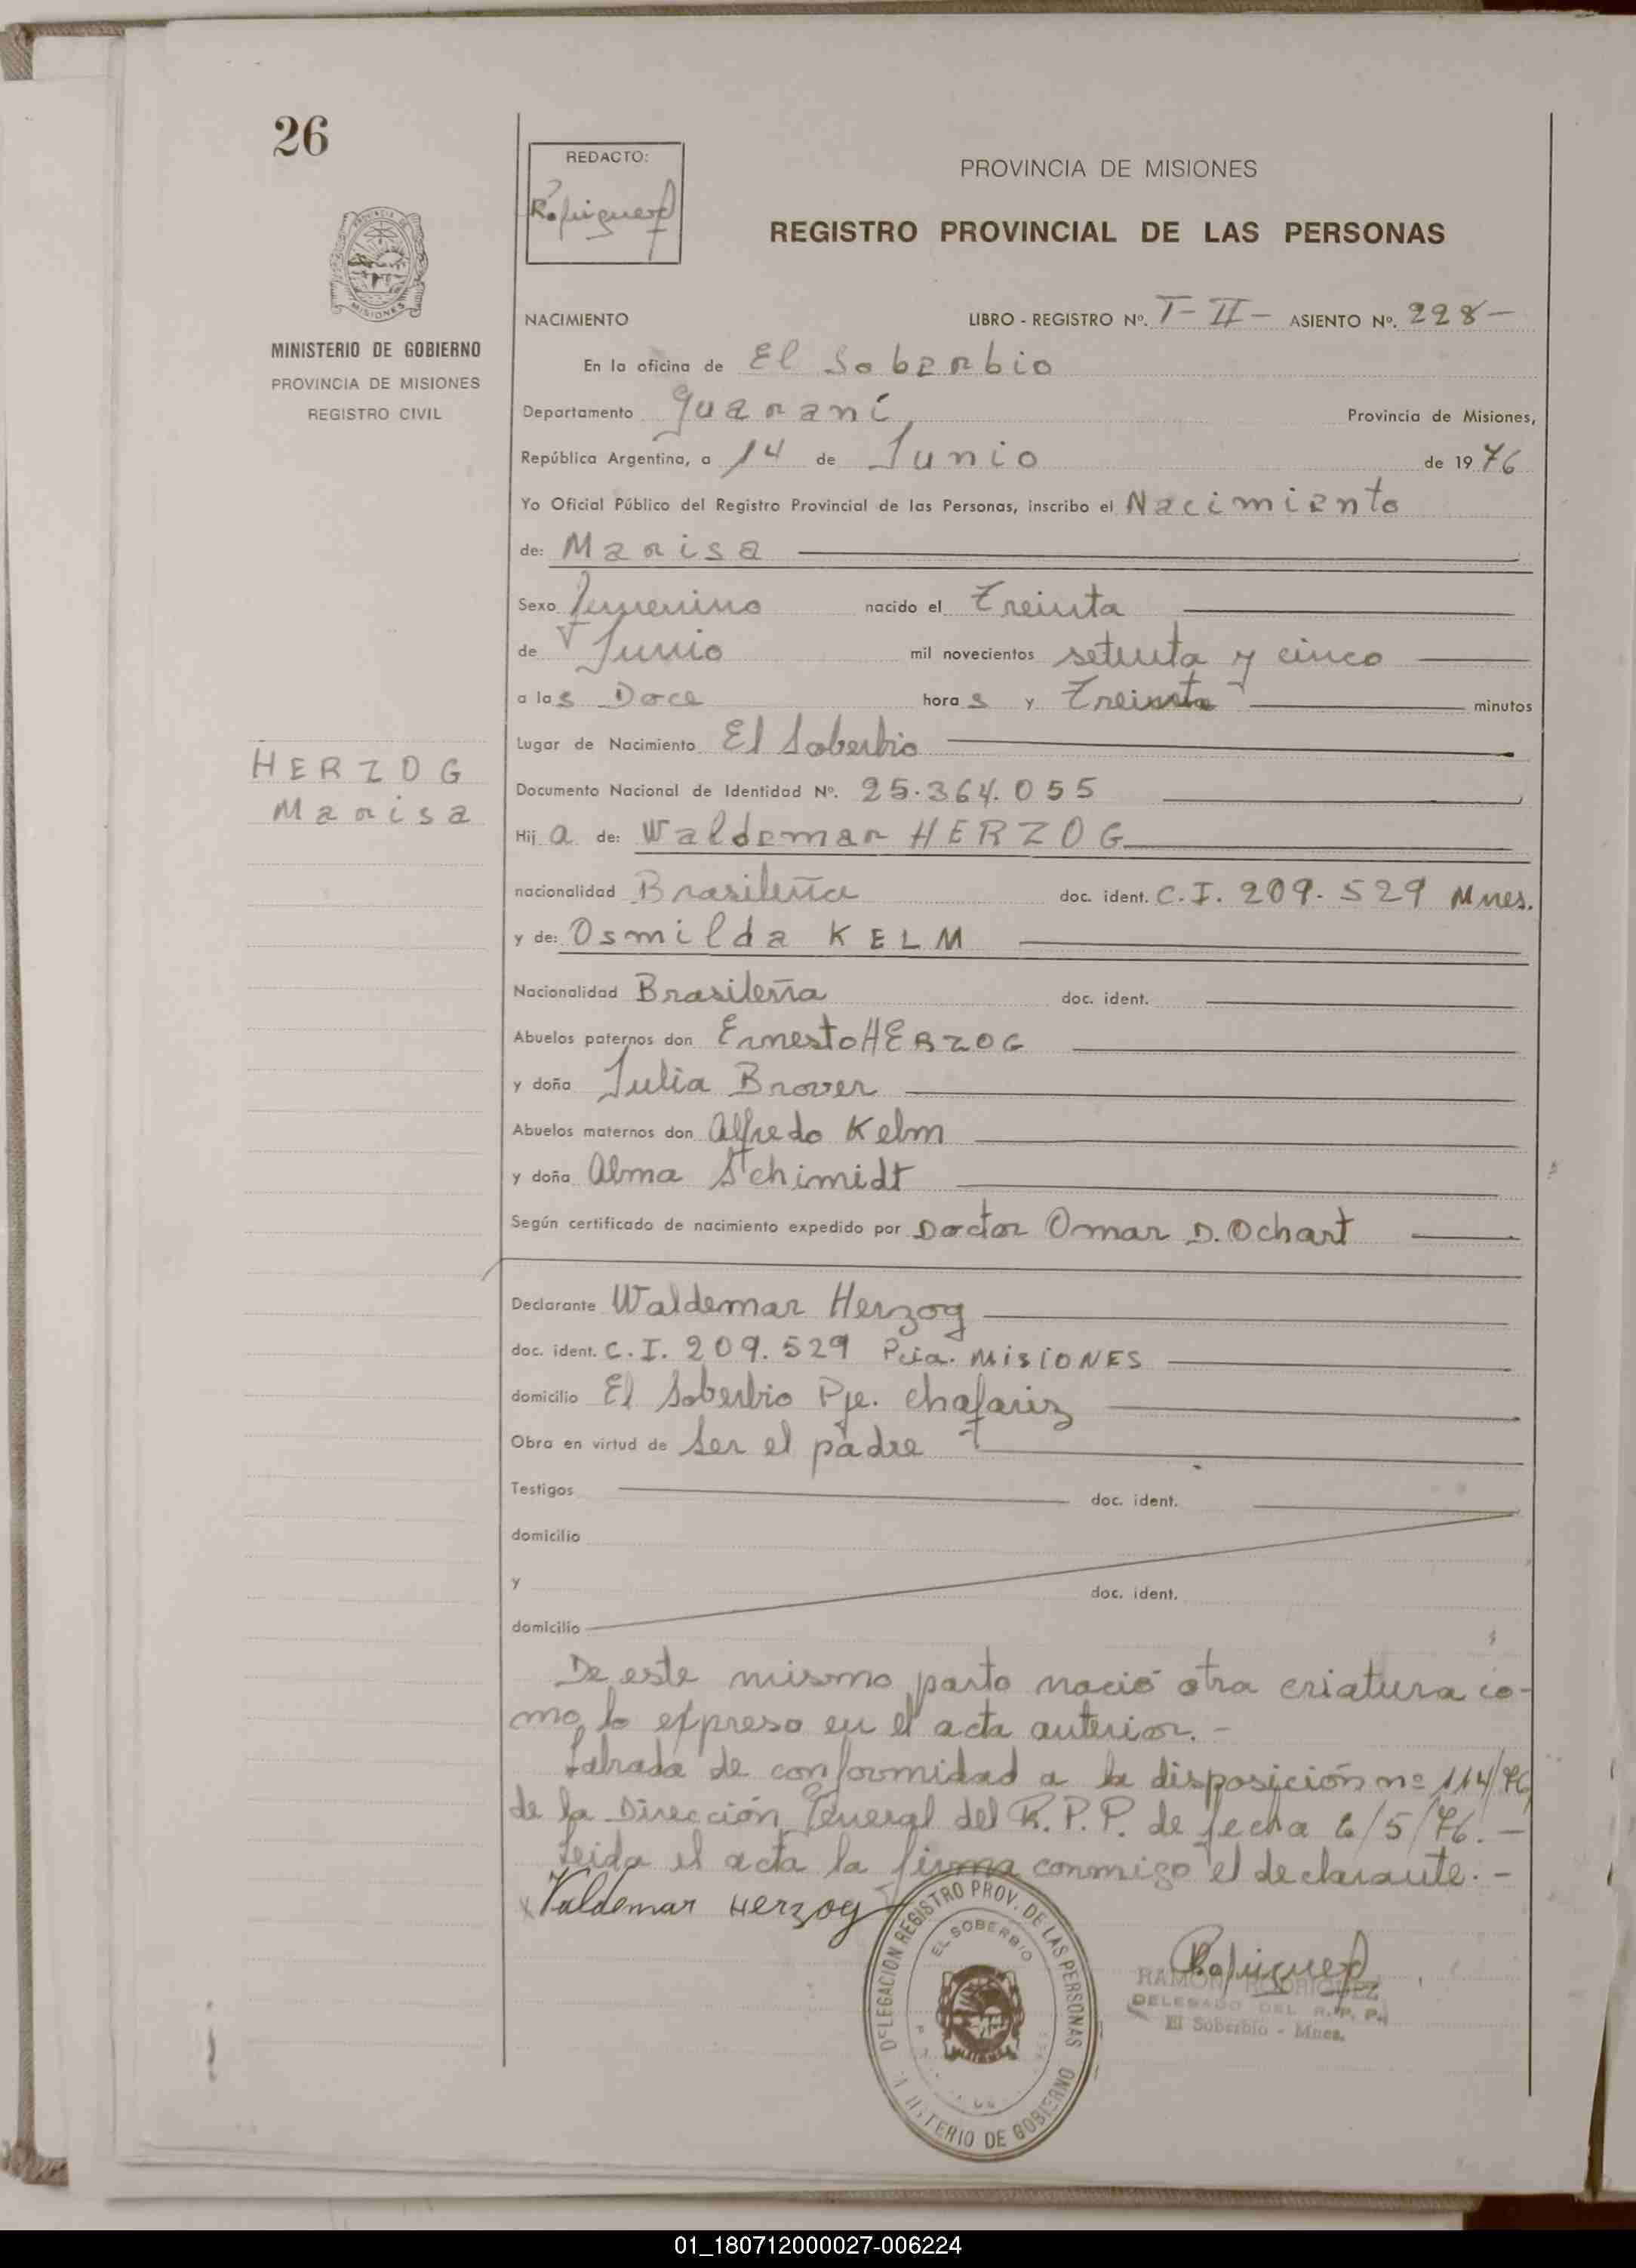 26
REDACTO:
PROVINCIA DE MISIONES
REGISTRO PROVINCIAL DE LAS PERSONAS
NACIMIENTO LIBRO - REGISTRO Nº. T- II - ASIENTO Nº. 228 -
MINISTERIO DE GOBIERNO
PROVINCIA DE MISIONES
REGISTRO CIVIL
En la oficina de El Soberbio
Departamento Guaraní Provincia de Misiones,
República Argentina, a 14 de Junio de 1976
Yo Oficial Público del Registro Provincial de las Personas, inscribo el Nacimiento
de: Marisa
Sexo femenino nacido el Treinta
de Junio mil novecientos setenta y cinco
a las Doce horas y Treinta minutos
Lugar de Nacimiento El Soberbio
HERZOG
Marisa
Documento Nacional de Identidad Nº. 25.364.055
Hija de: Waldemar HERZOG
nacionalidad Brasileña doc. ident. C.I. 209.529 Mnes.
y de: Osmilda KELM
Nacionalidad Brasileña doc. ident.
Abuelos paternos don Ernesto HERZOG
y doña Julia Brover
Abuelos maternos don Alfredo Kelm
y doña Alma Schimidt
Según certificado de nacimiento expedido por Doctor Omar D. Ochart
Declarante Waldemar Herzog
doc. ident. C.I. 209.529 Pcia. MISIONES
domicilio El Soberbio Pje. Chafariz
Obra en virtud de Ser el padre
Testigos doc. ident.
domicilio
y doc. ident.
domicilio
De este mismo parto nació otra criatura co-
mo lo expreso en el acta anterior.-
Labrada de conformidad a la disposición nº 114/76
de la Dirección General del R.P.P. de fecha 6/5/76.-
Leida el acta la firma conmigo el declarante.-
Valdemar Herzog
DELEGACION REGISTRO PROV. DE LAS PERSONAS
EL SOBERBIO
MINISTERIO DE GOBIERNO
RAMON RODRIGUEZ
DELEGADO DEL R. P. P.
El Soberbio - Mnes.
01_180712000027-006224